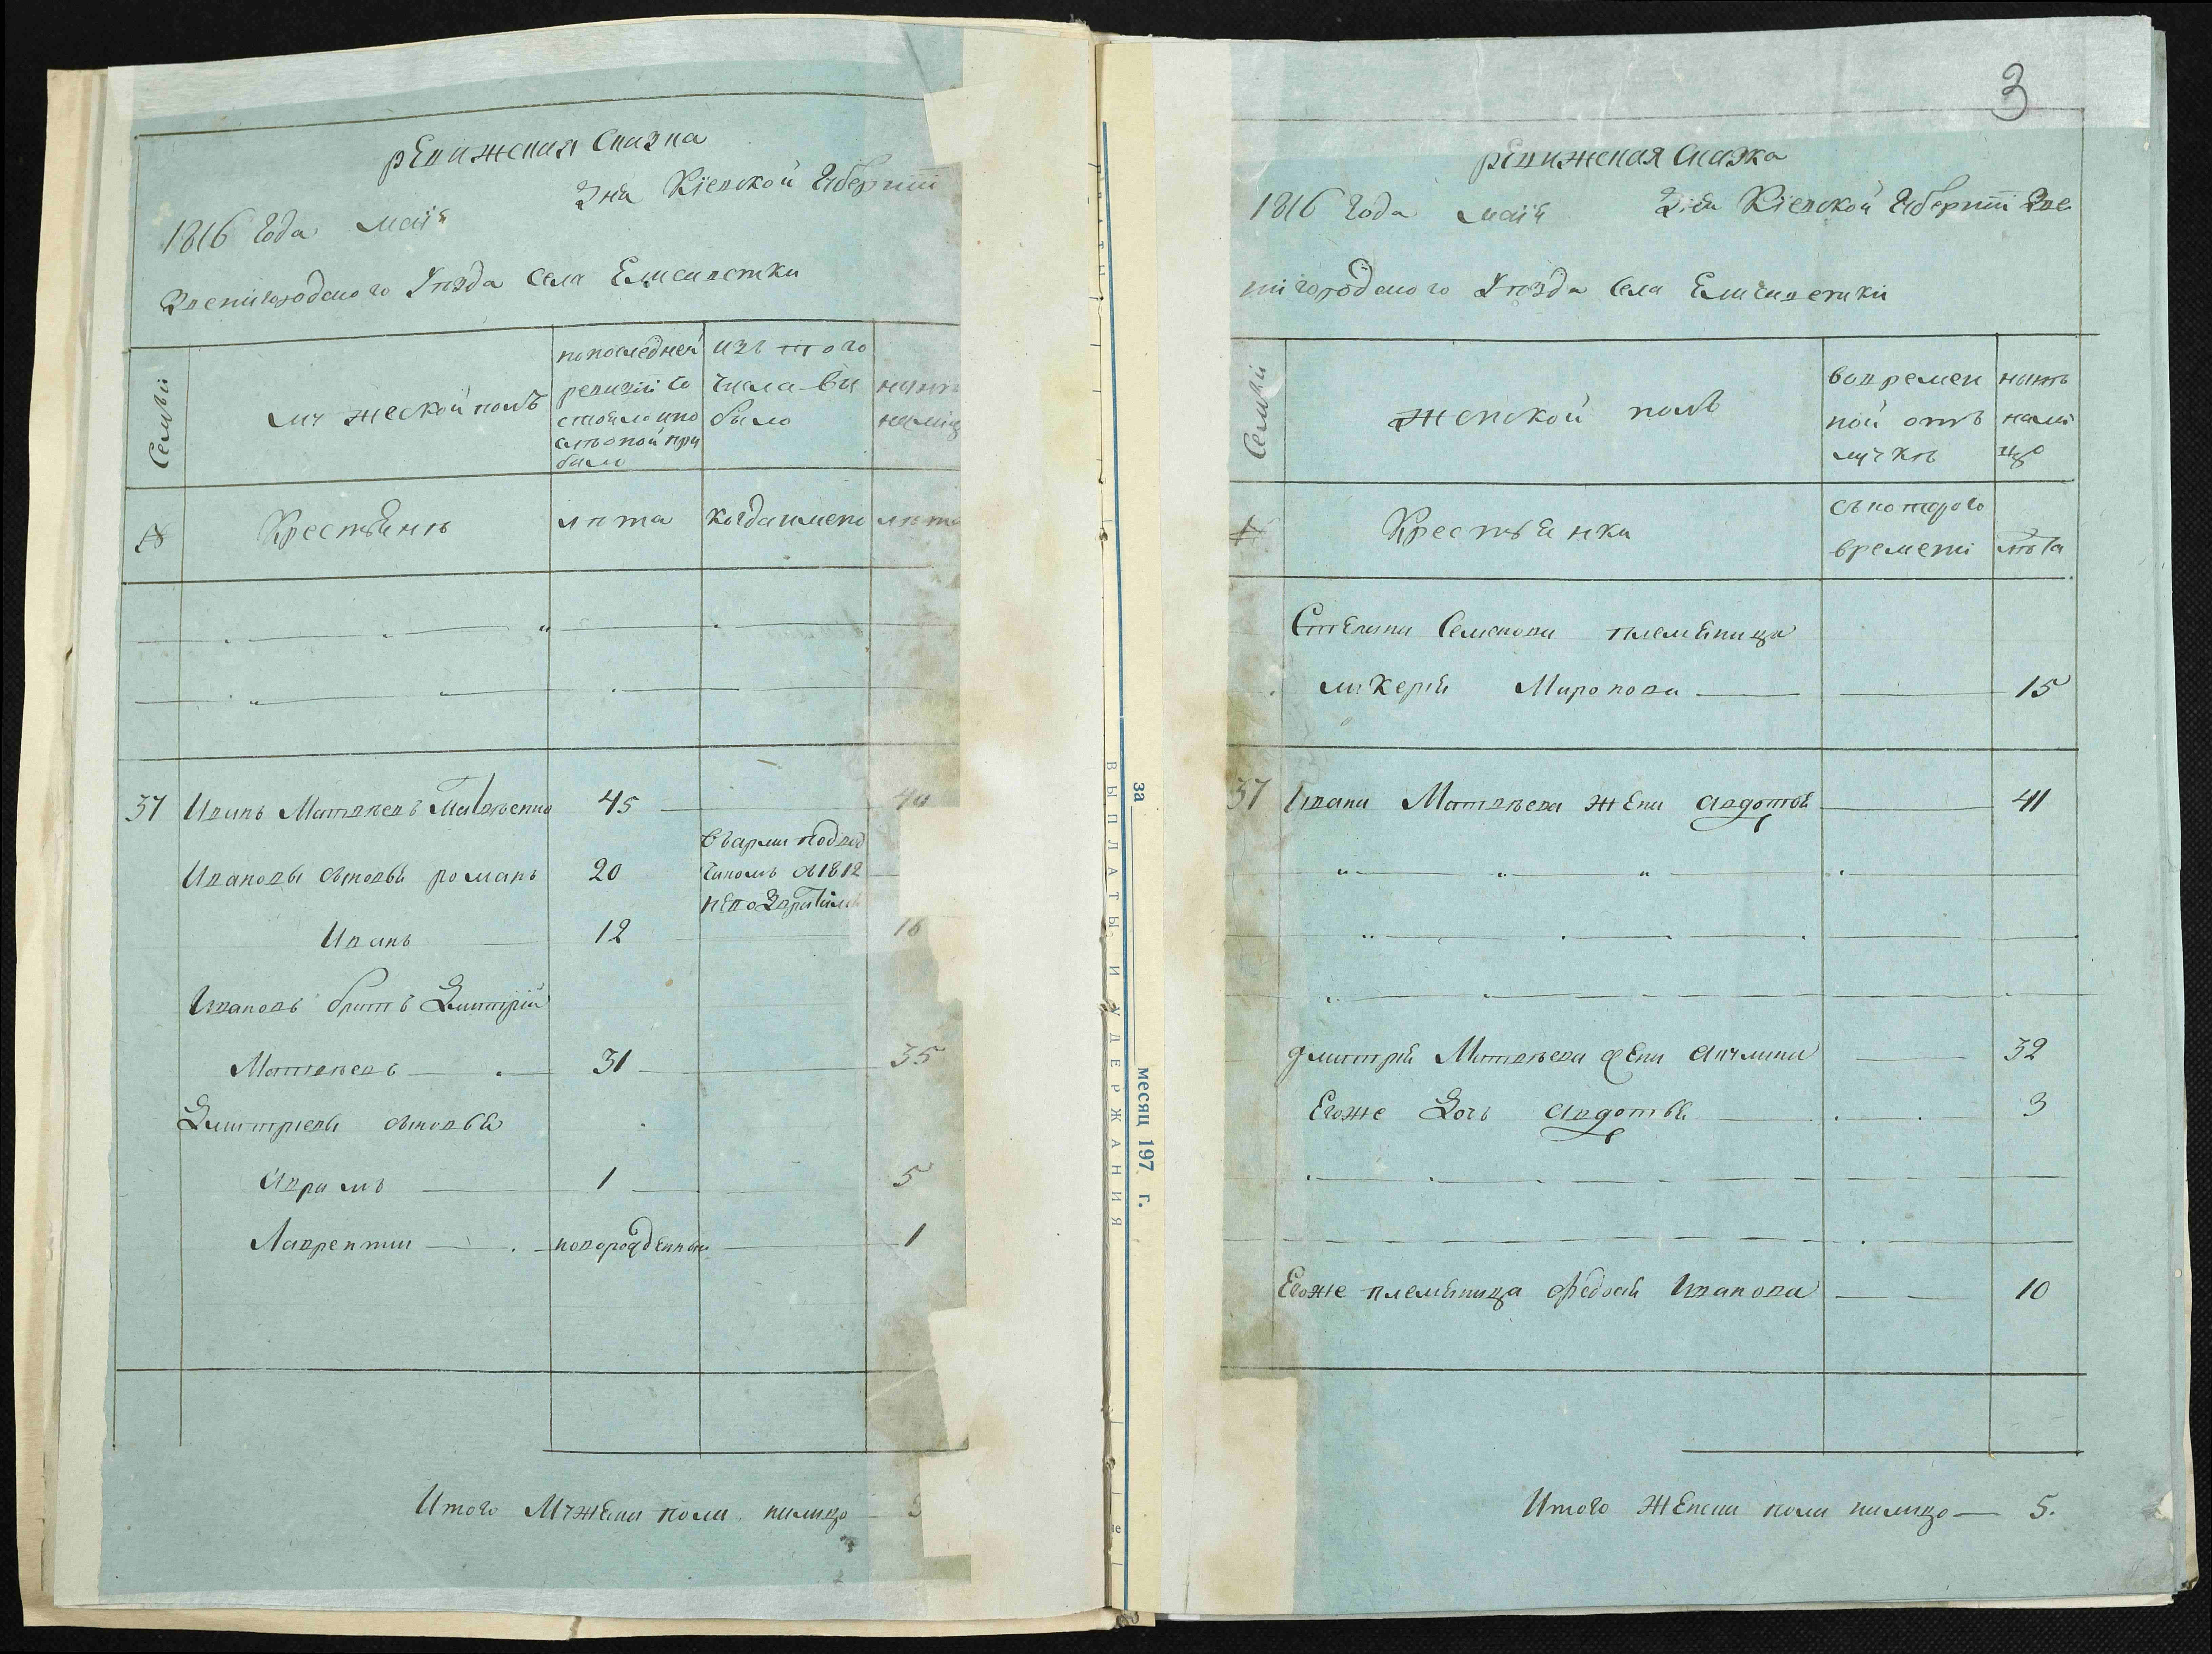 ревижская сказка
1816 года маія дня Кіевской Губерніи
Звенигородского Уѣзда села Елисаветки
Семьи
мужеской полъ
по последней ревизіи состояло и после оной прибыло
изъ того числа выбыло
нынѣ налицо
№
Крестьянѣ
лѣта
когда имено
лѣта
37 Иванъ Матвѣевъ 45
Ивановы сыновья романъ 20 с 1812
Иванъ 12 16
Ивановъ братъ Дмитрій
Матвѣевъ 31 35
Дмитріевы сыновья
Аврамъ 1 5
Лаврентии новорожденныи 1
Итого Мужеска пола налицо
3
ревижская сказка
1816 года маія дня Кіевской Губерніи Зве
нигородского Уѣзда села Елисаветки
Семьи
женской полъ
во времен
ной отъ
лучкѣ
нынѣ
нали
цо
№
Крестьянки
съ которого
времени
лѣта
Семенова племяница
лукерія Миронова 15
37 Ивана Матвѣева жена авдотья 41
дмитрія Матвѣева жена акулина 32
Егоже дочь авдотья 3
Егоже племяница Федосія Иванова 10
Итого женска пола налицо 5.
за месяц 197 г.
ВЫПЛАТЫ И УДЕРЖАНИЯ